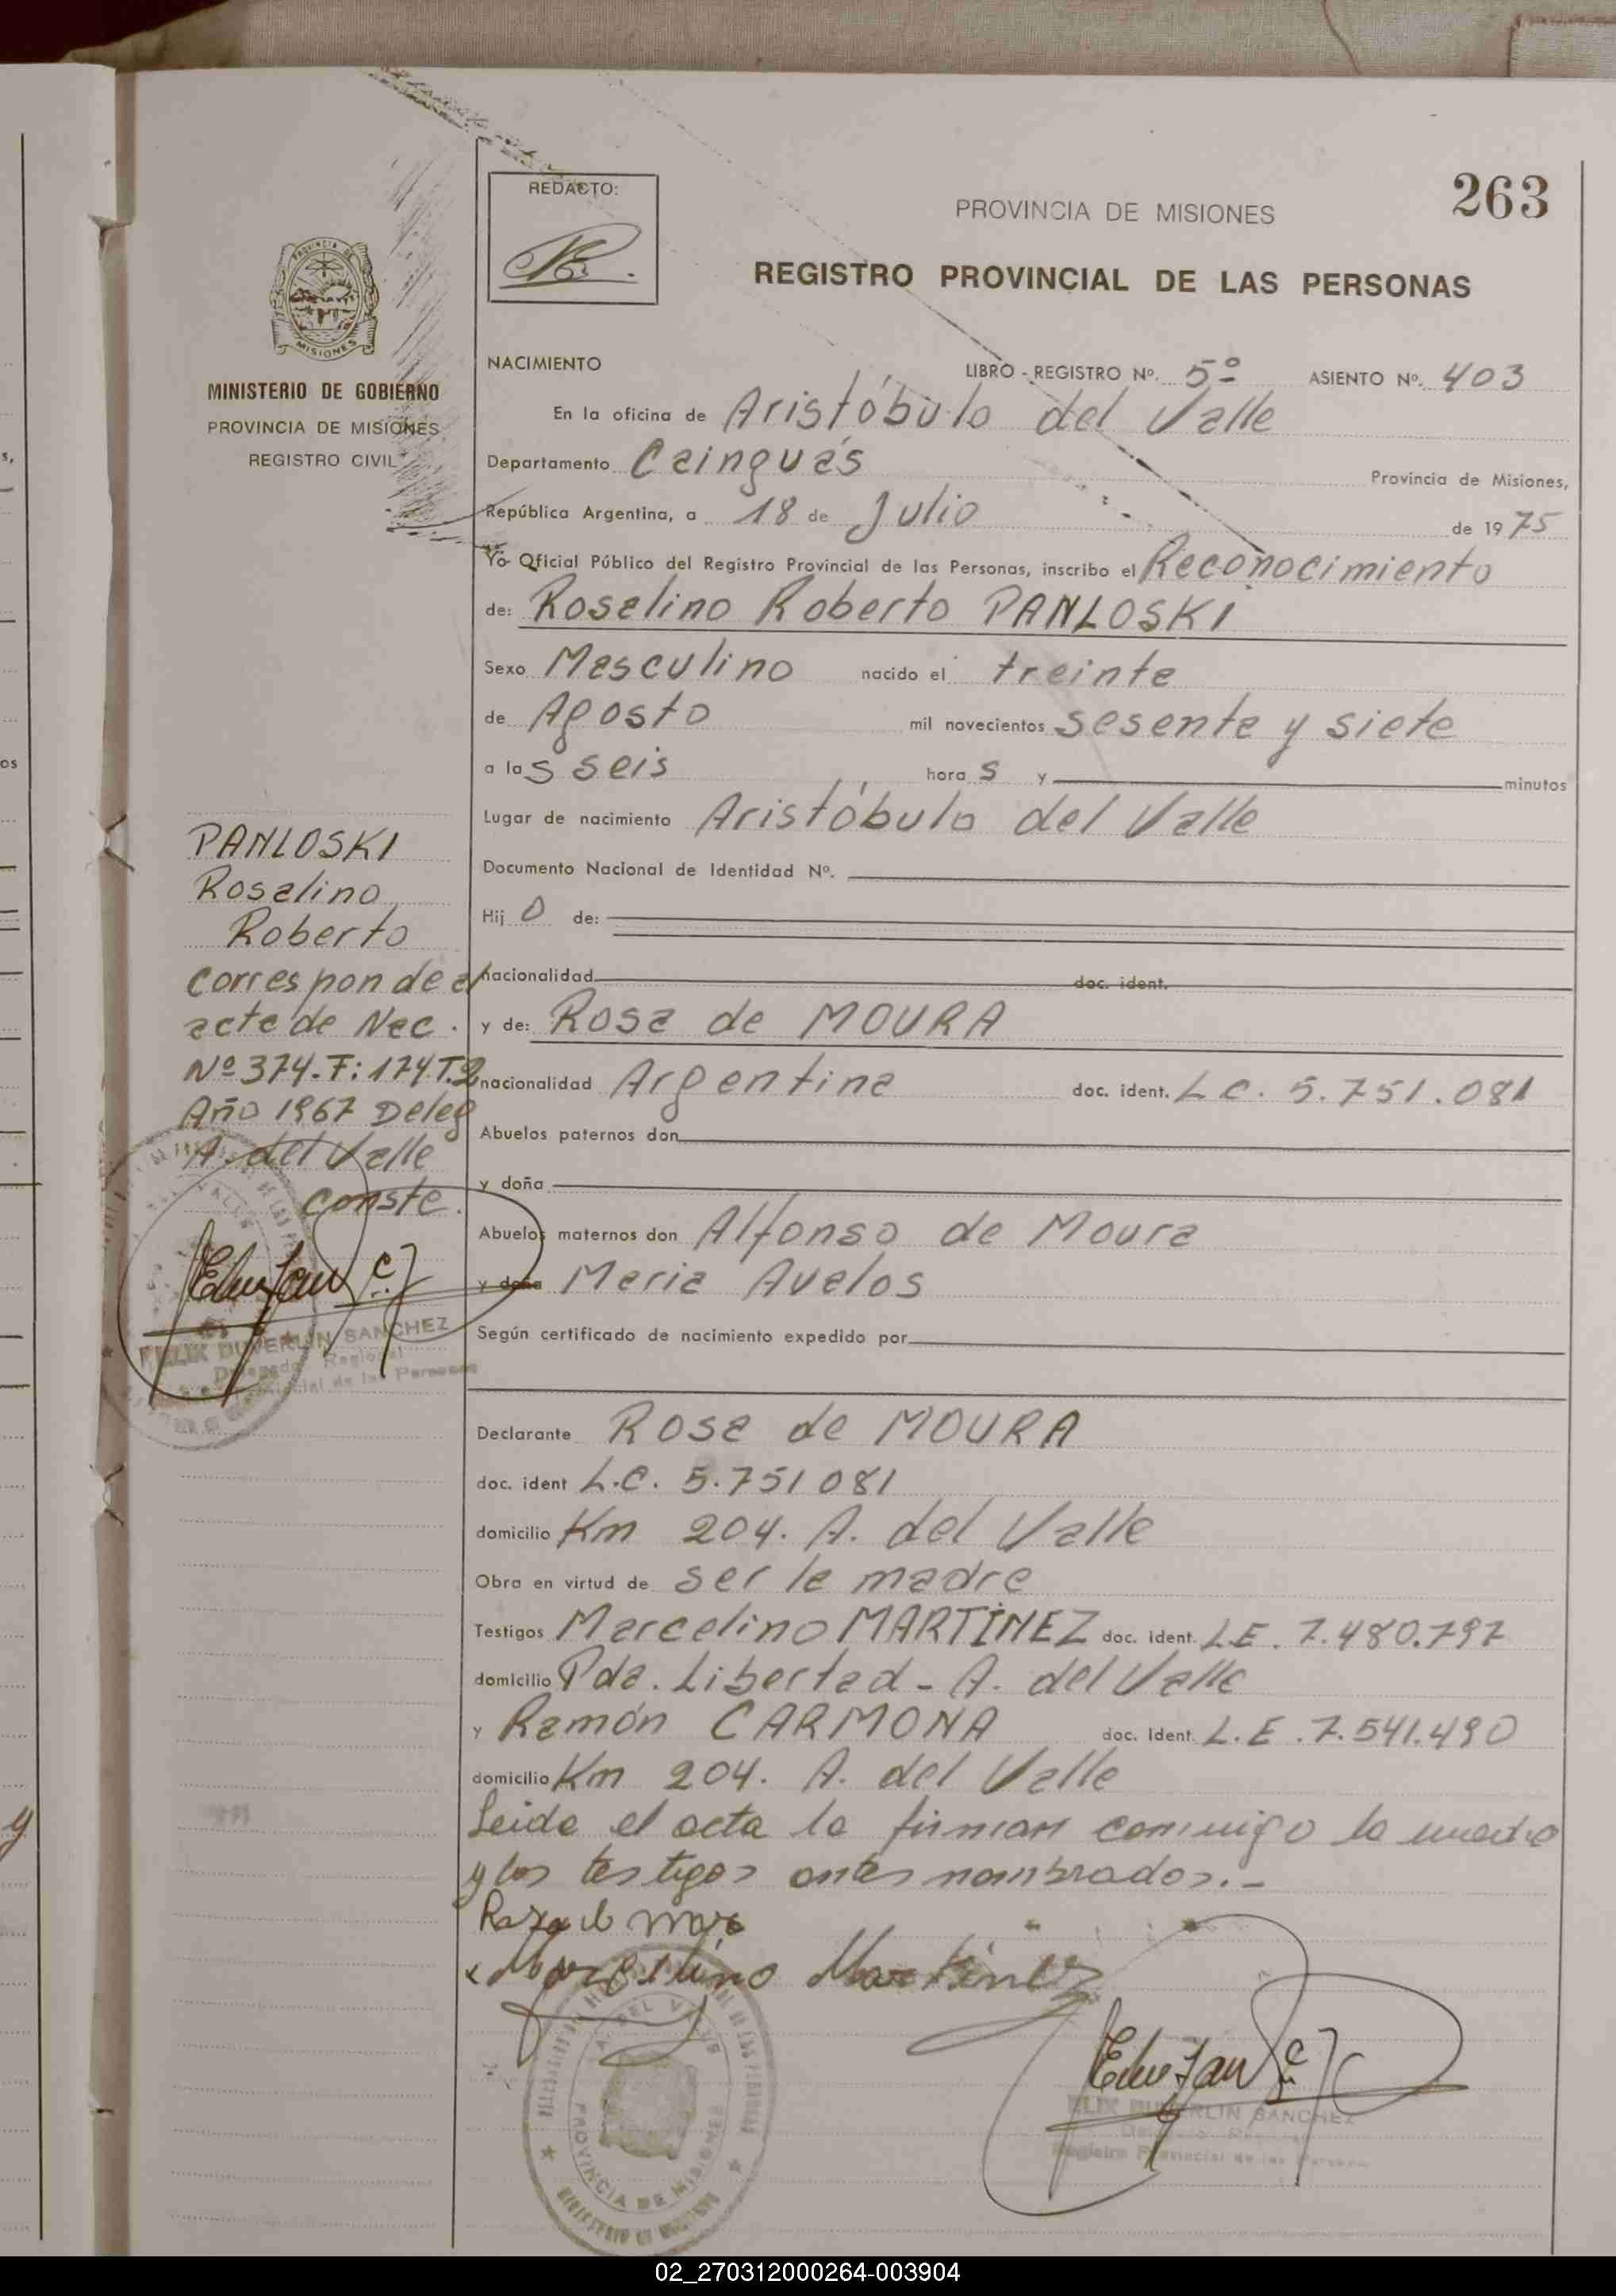 263
REDACTO:
PROVINCIA DE MISIONES
REGISTRO PROVINCIAL DE LAS PERSONAS
PROVINCIA DE
MISIONES
MINISTERIO DE GOBIERNO
PROVINCIA DE MISIONES
REGISTRO CIVIL
NACIMIENTO LIBRO - REGISTRO Nº. 5º ASIENTO Nº. 403
En la oficina de Aristóbulo del Valle
Departamento Cainguás Provincia de Misiones,
República Argentina, a 18 de Julio de 1975
Yo Oficial Público del Registro Provincial de las Personas, inscribo el Reconocimiento
de: Rosalino Roberto PANLOSKI
Sexo Masculino nacido el treinta
de Agosto mil novecientos sesenta y siete
a las seis horas y minutos
Lugar de nacimiento Aristóbulo del Valle
Documento Nacional de Identidad Nº.
Hijo de:
nacionalidad doc. ident.
y de: Rosa de MOURA
nacionalidad Argentina doc. ident. L C. 5.751.081
Abuelos paternos don
y doña
Abuelos maternos don Alfonso de Moura
y doña Maria Avalos
Según certificado de nacimiento expedido por
Declarante Rosa de MOURA
doc. ident L.C. 5.751081
domicilio Km 204. A. del Valle
Obra en virtud de ser la madre
Testigos Marcelino MARTÍNEZ doc. ident. LE. 7.480.797
domicilio Pda. Libertad - A. del Valle
y Ramón CARMONA doc. Ident. L.E. 7.541.490
domicilio Km 204. A. del Valle
Leida el acta la firman conmigo la madre
y los testigos antes nombrados.-
Marcelino Martinez
FELIX DUPERLIN SANCHEZ
Registro Provincial de las Personas
PROVINCIA DE MISIONES
PANLOSKI
Rosalino
Roberto
Corresponde al
acta de Nac.
Nº 374-F: 174 T.2
Año 1967 Deleg
A. del Valle
conste.
FELIX DUPERLIN SANCHEZ
Delegado Regional
Provincial de las Personas
02_270312000264-003904